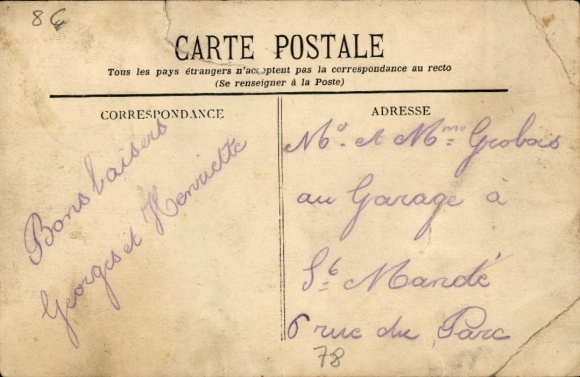 8€
CARTE POSTALE
Tous les pays étrangers n'acceptent pas la correspondance au recto
(Se renseigner à la Poste)
CORRESPONDANCE
Bons baisers
Georges et Henriette
ADRESSE
Mr. et Mme Grobois
au Garage à
St. Mandé
6 rue du Parc
78